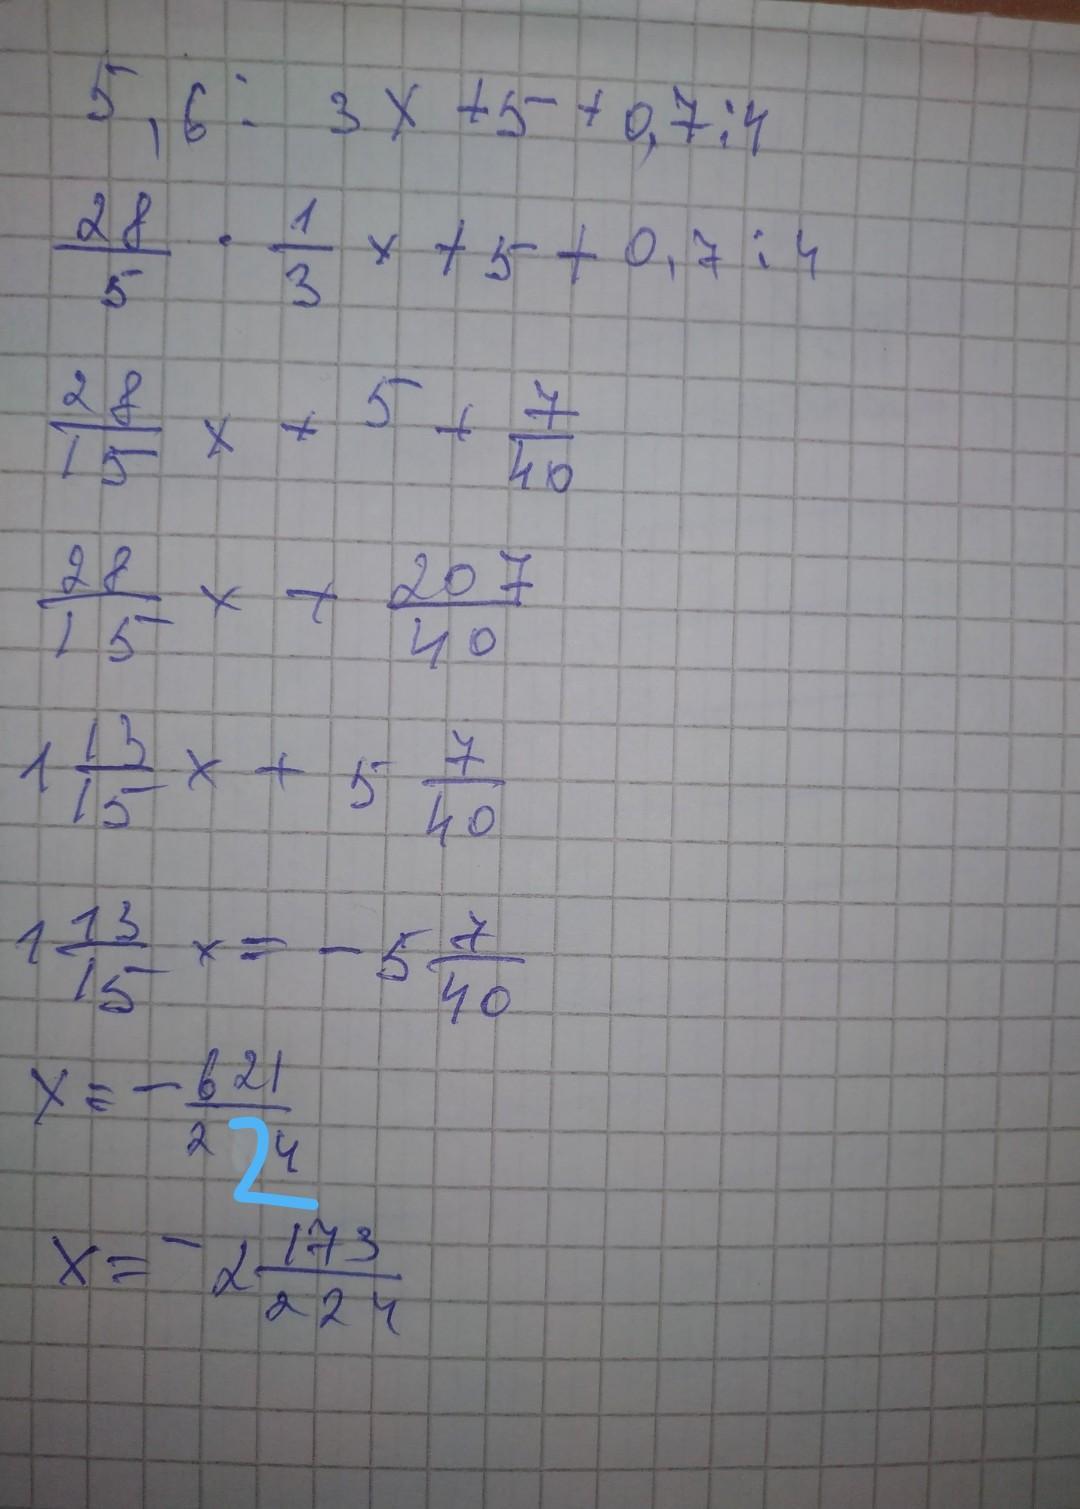 5,6 : 3x + 5 + 0,7 : 4
28/5 · 1/3 x + 5 + 0,7 : 4
28/15 x + 5 + 7/40
28/15 x + 207/40
1 13/15 x + 5 7/40
1 13/15 x = - 5 7/40
x = - 621/224
x = - 2 173/224